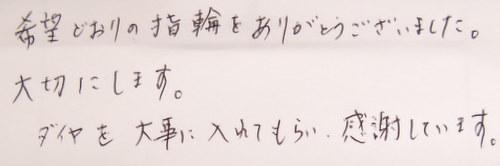 希望どおりの指輪をありがとうございました。
大切にします。
ダイヤを大事に入れてもらい、感謝しています。